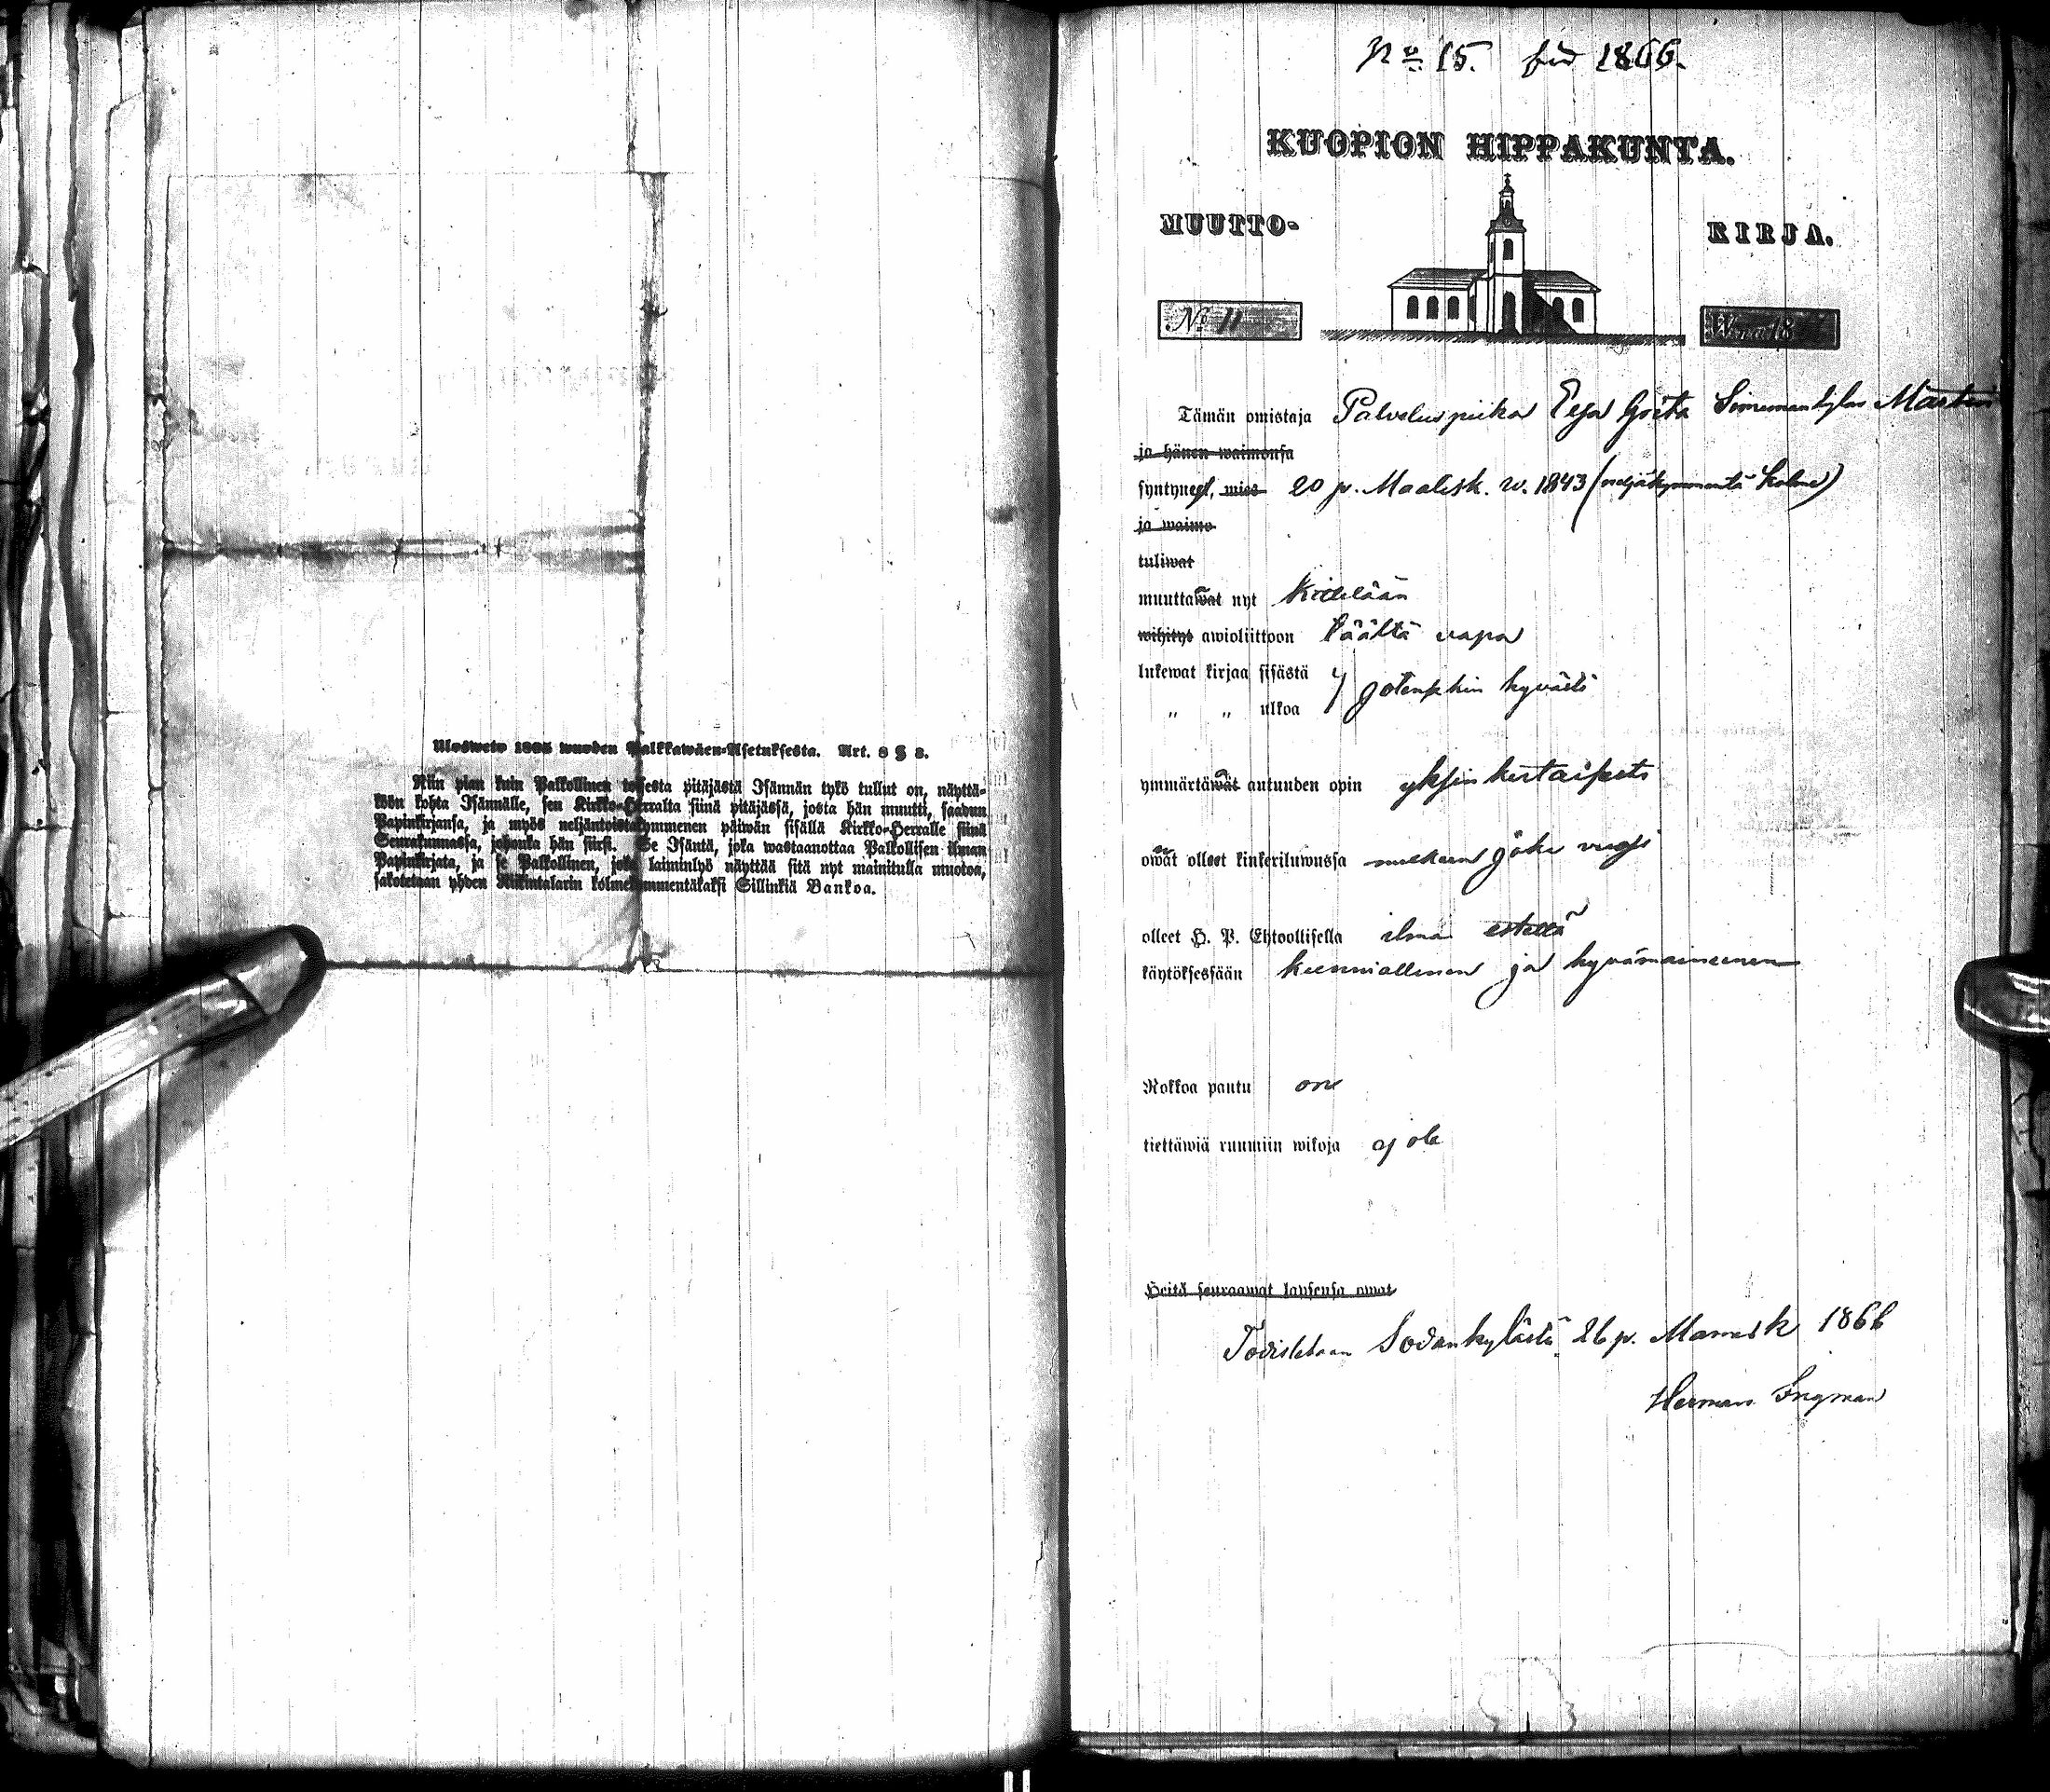 Ulosweto 1805 wuoden Palkkawäen-Asetuksesta. Art. 8 § 8.
Niin pian kuin Palkollinen toisesta pitäjästä Isännän tykö tullut on, näyttä-
köön kohta Isännälle, sen Kirkko-Herralta siinä pitäjässä, josta hän muutti, saadun
Papinkirjansa, ja myös neljäntoistakymmenen päiwän sisällä Kirkko-Herralle siinä
Seurakunnassa, johonka hän siirsi. Se Isäntä, joka wastaanottaa Palkollisen ilman
Papinkirjata, ja se Palkollinen, joka laiminlyö näyttää sitä nyt mainitulla muotoa,
sakotetaan yhden Riikintalarin kolmekymmentäkaksi Sillinkiä Bankoa.
No 15. för 1866.
KUOPION HIPPAKUNTA.
MUUTTO- KIRJA.
No 11 Wuonna 18
Tämän omistaja Palveluspiika Eva Greta Martin
ja hänen waimonsa
syntynyt, mies 20 p. Maalisk. w. 1843 (neljäkymmentä kolme)
ja waimo
tuliwat
muuttawat nyt Kittilään
wihityt awioliittoon täältä vapa
lukewat kirjaa sisästä
" " ulkoa jotenkin hyvästi
ymmärtäwät autuuden opin yksinkertaisesti
owat olleet kinkeriluwussa melkeen joka vuosi
olleet H. P. Ehtoollisella ilman estettä
käytöksessään kunniallinen ja hyvämaineinen
Rokkoa pantu on
tiettäwiä ruumiin wikoja ej ole
Heitä seuraawat lapsensa owat
Todistetaan Sodankylästä 26 p. Marrask 1866
Herman Ingman